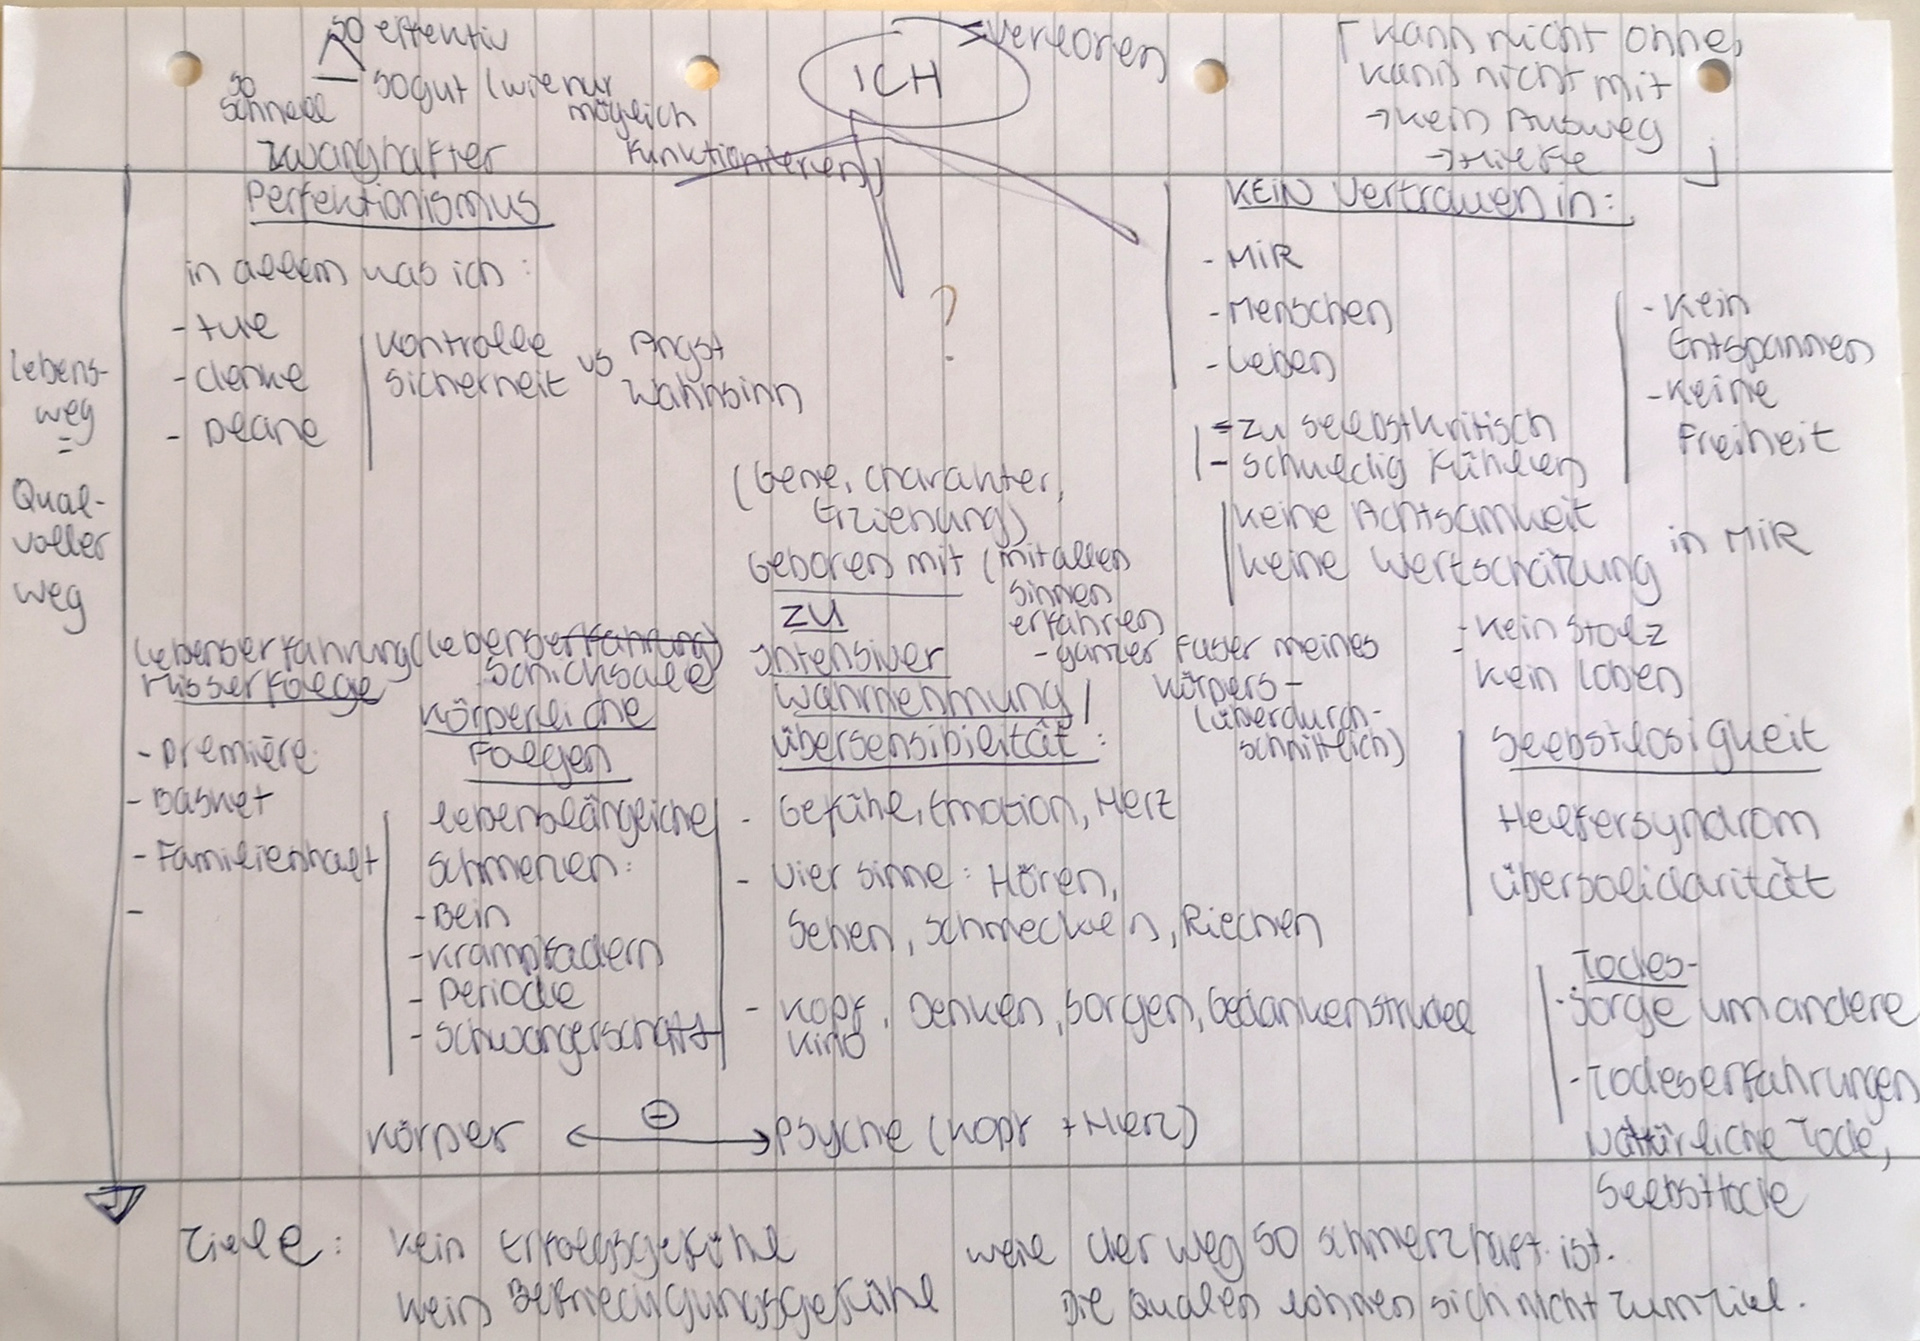 so effektiv
so schnell
so gut (wie nur möglich
zwanghafter
Perfektionismus
funktionieren)
ICH
verloren
kann nicht ohne,
kann nicht mit
→ kein Ausweg
→ Hilfe
in allem was ich:
- tue
- denke
- plane
Kontrolle
Sicherheit
vs
Angst
Wahnsinn
?
KEIN Vertrauen in:
- MIR
- Menschen
- Leben
- Kein
Entspannen
- Keine
Freiheit
- zu selbstkritisch
- schuldig fühlen
keine Achtsamkeit
keine Wertschätzung
in MIR
- kein Stolz
kein loben
Lebens-
weg
=
Qual-
voller
weg
(Gene, Charakter,
Erziehung)
Geboren mit
zu
intensiver
Wahrnehmung /
Übersensibilität:
(mit allen
Sinnen
erfahren
- ganzer Faser meines
Körpers -
(überdurch-
schnittlich)
- Gefühle, Emotion, Herz
- vier Sinne: Hören,
Sehen, schmecken, Riechen
- Kopf, Denken, Sorgen, Gedankenstrudel
Kino
Lebenserfahrung (Lebenserfahrung)
Misserfolge
Schicksale
- Première
- Basket
- Familienhalt
-
Körperliche
Folgen
lebenslängliche
Schmerzen:
- Bein
- Krampfadern
- Periode
- Schwangerschaft
Selbstlosigkeit
Helfersyndrom
Übersolidarität
Todes-
- Sorge um andere
- Todeserfahrungen
Natürliche Tode,
Selbsttode
Körper ← ⊖ → Psyche (Kopf + Herz)
Ziele: kein Erfolgsgefühl weil der weg so schmerzhaft ist.
kein Befriedigungsgefühl Die Qualen lohnen sich nicht zum Ziel.